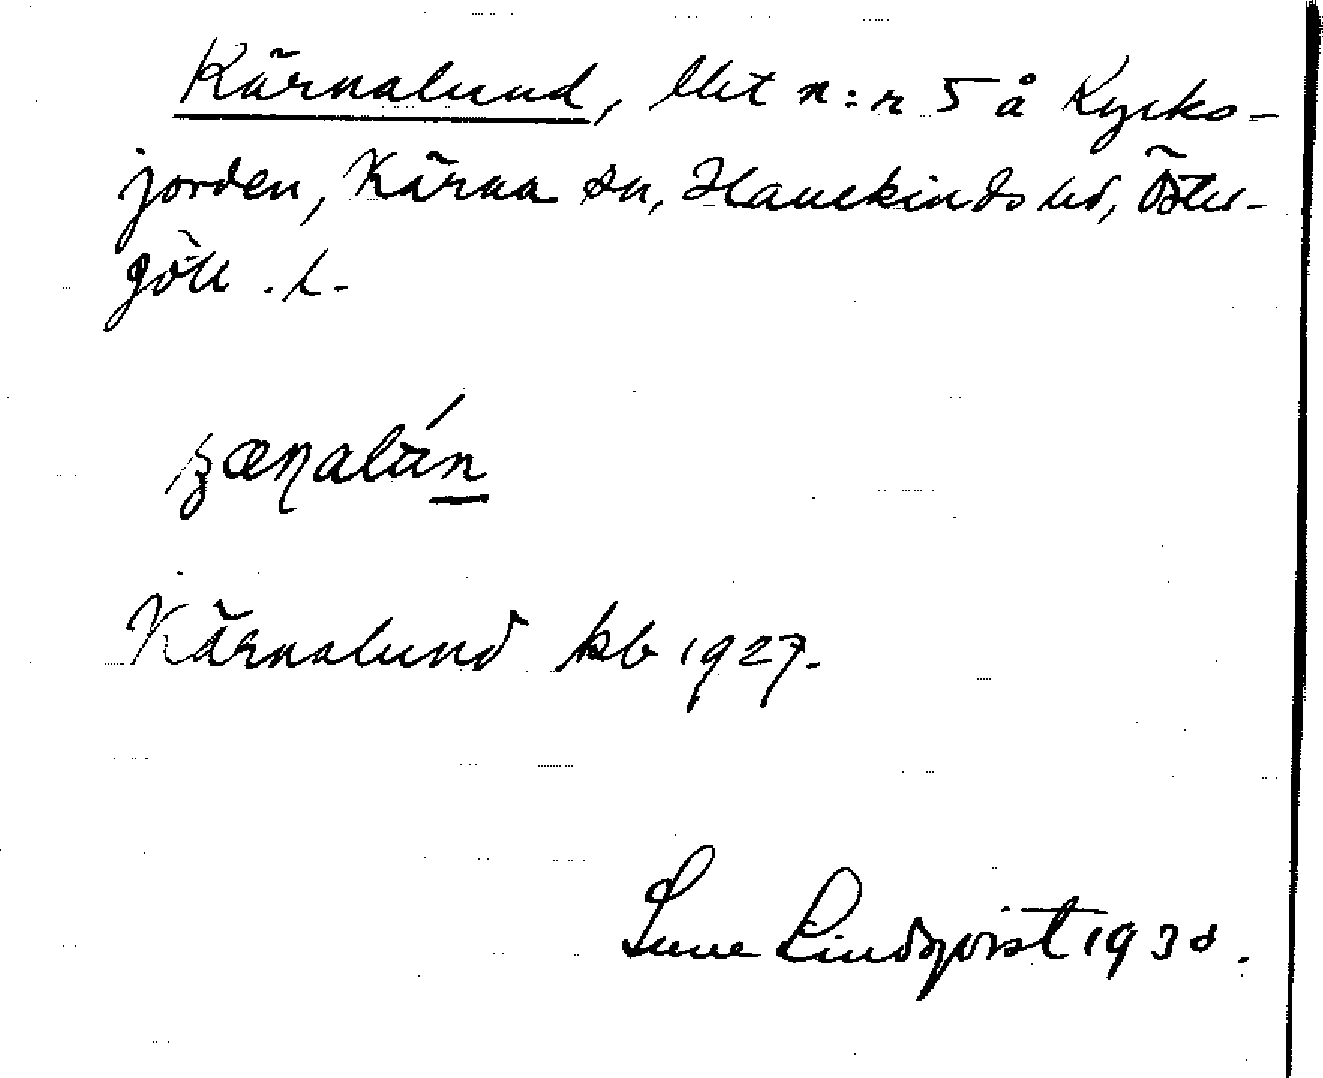 Kärnalund, lht n:r 5 å Kyrko-
jorden, Kärna sn, Hanekinds hd, Öster-
götl. l.
Kärnalund kb 1927.
Sune Lindqvist 1930.